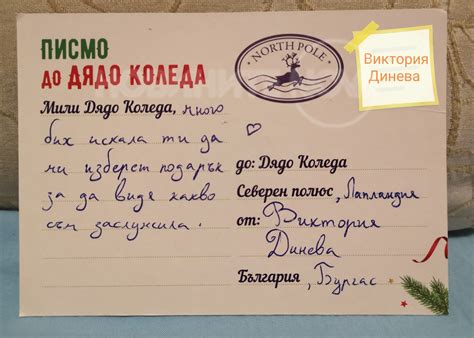 ПИСМО
ДО ДЯДО КОЛЕДА
NORTH POLE
Виктория
Динева
Мили Дядо Коледа, много
бих искала ти да
ми избереш подарък
за да видя какво
съм заслужила.
до: Дядо Коледа
Северен полюс, Лапландия
от: Виктория
Динева
България, Бургас